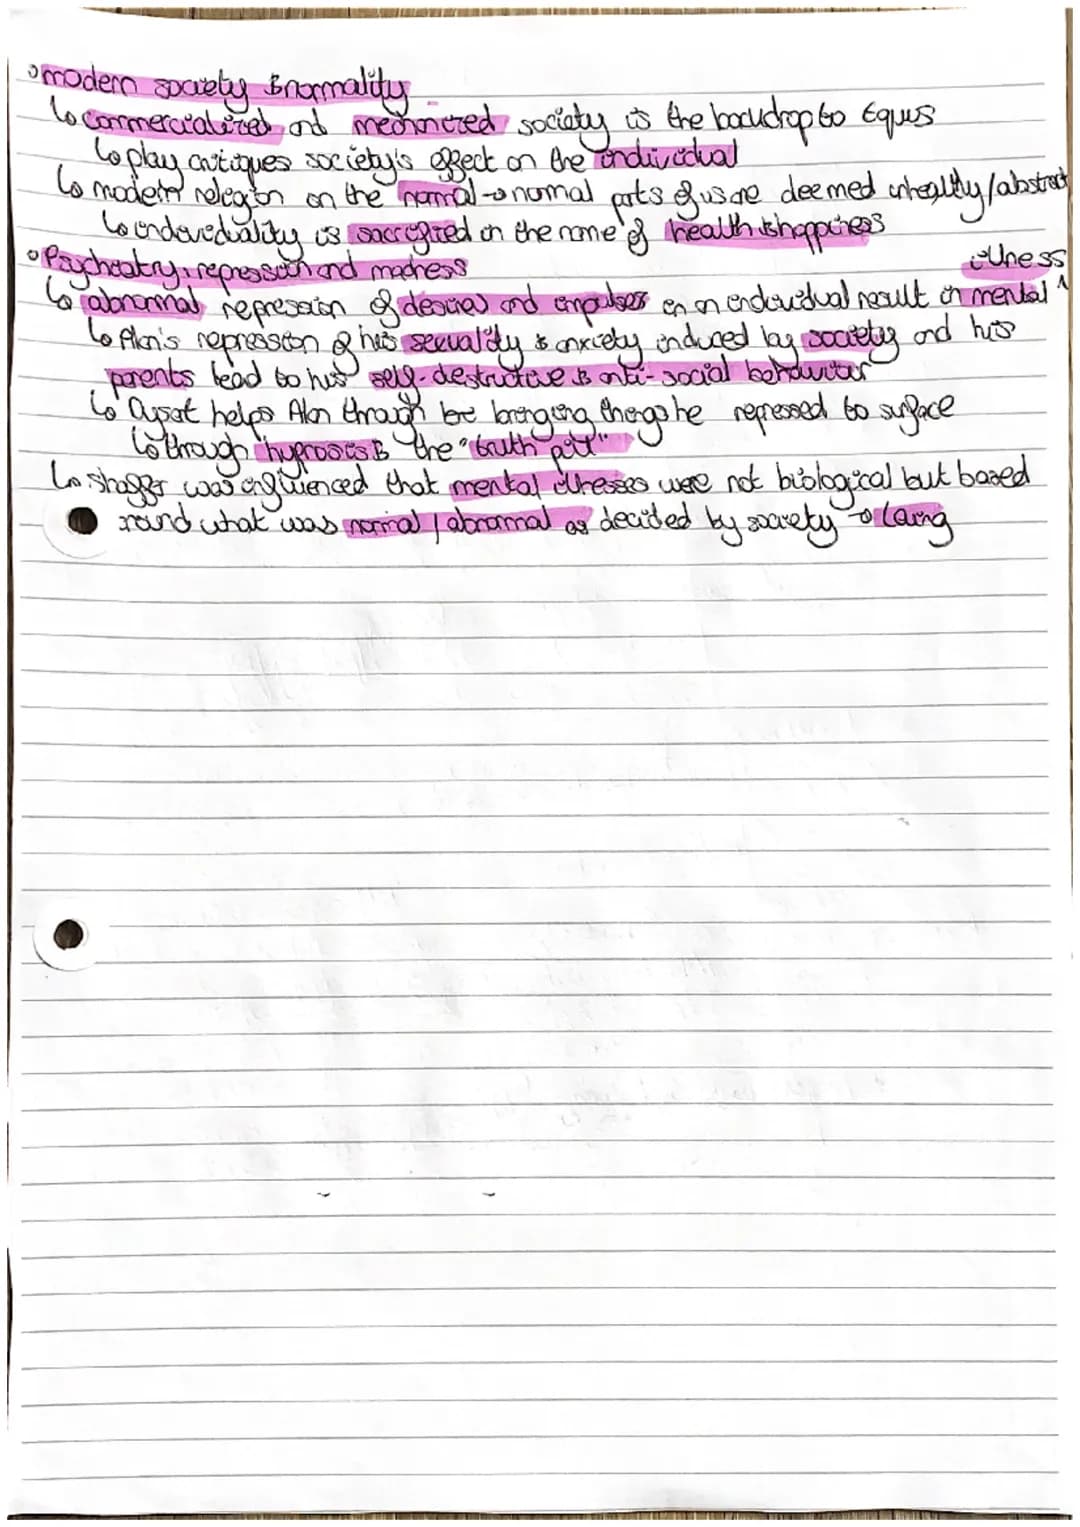 modern society & normality
↳ commercialized and mechanized society is the backdrop to Equus
↳ play critiques society's effect on the individual
↳ modern religion on the normal → normal parts of us are deemed unhealthy/abstract
↳ individuality is sacrificed in the name of health & happiness
Psychiatry, repression and madness
↳ abnormal repression of desires and impulses in an individual result in mental illness
↳ Alan's repression of his sexuality & anxiety induced by society and his
parents lead to his self-destructive & anti-social behaviour
↳ Dysart helps Alan through bringing things he repressed to surface
↳ through hypnosis & the "truth pill"
↳ Shaffer was influenced that mental illnesses were not biological but based
round what was normal / abnormal as decided by society → Laing